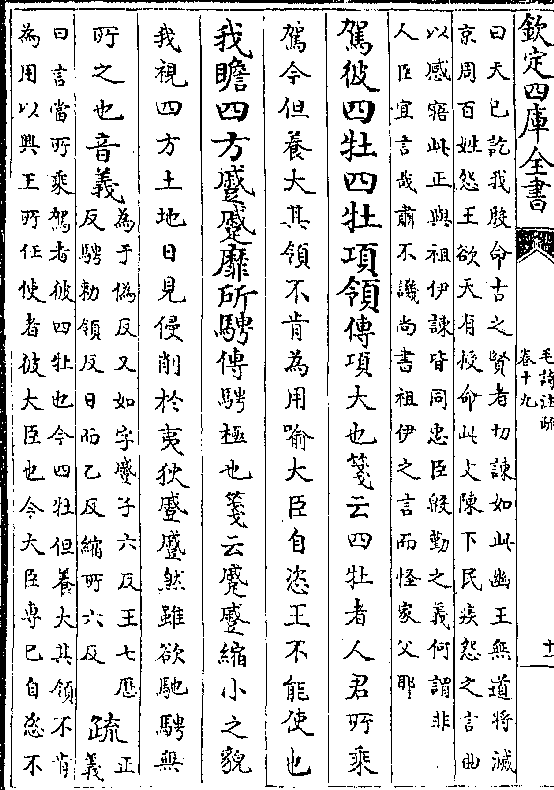 欽定四庫全書
毛詩注疏
卷十九
十一
曰天已訖我殷命古之賢者切諫如此幽王無道將滅
京周百姓怨王欲天有授命此文陳下民疾怨之言曲
以感寤此正與祖伊諫皆同忠臣殷勤之義何謂非
人臣宜言哉肅不譏尚書祖伊之言而怪家父耶
駕彼四牡四牡項領傳項大也箋云四牡者人君所乘
駕今但養大其領不肯為用喻大臣自恣王不能使也
我瞻四方蹙蹙靡所騁傳騁極也箋云蹙蹙縮小之貌
我視四方土地日見侵削於夷狄蹙蹙然雖欲馳騁無
所之也音義為于偽反又如字蹙子六反王七歴
反騁勑領反日而乙反縮所六反疏正
義
曰言當所乘駕者彼四牡也今四牡但養大其領不肯
為用以興王所任使者彼大臣也今大臣專已自恣不